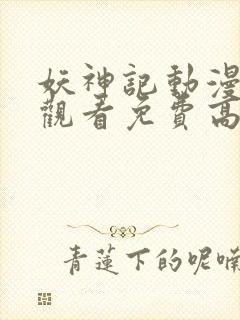 妖神記動漫
觀看免費高
青蓮下的呢喃